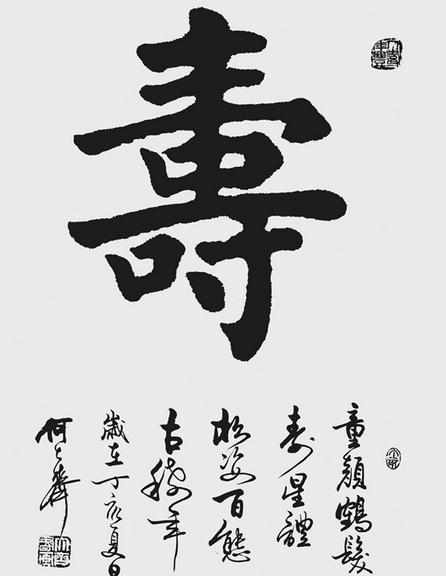 壽
童顏鶴髮
寿星體
松姿百態
古稀年
歲在丁亥夏日
何